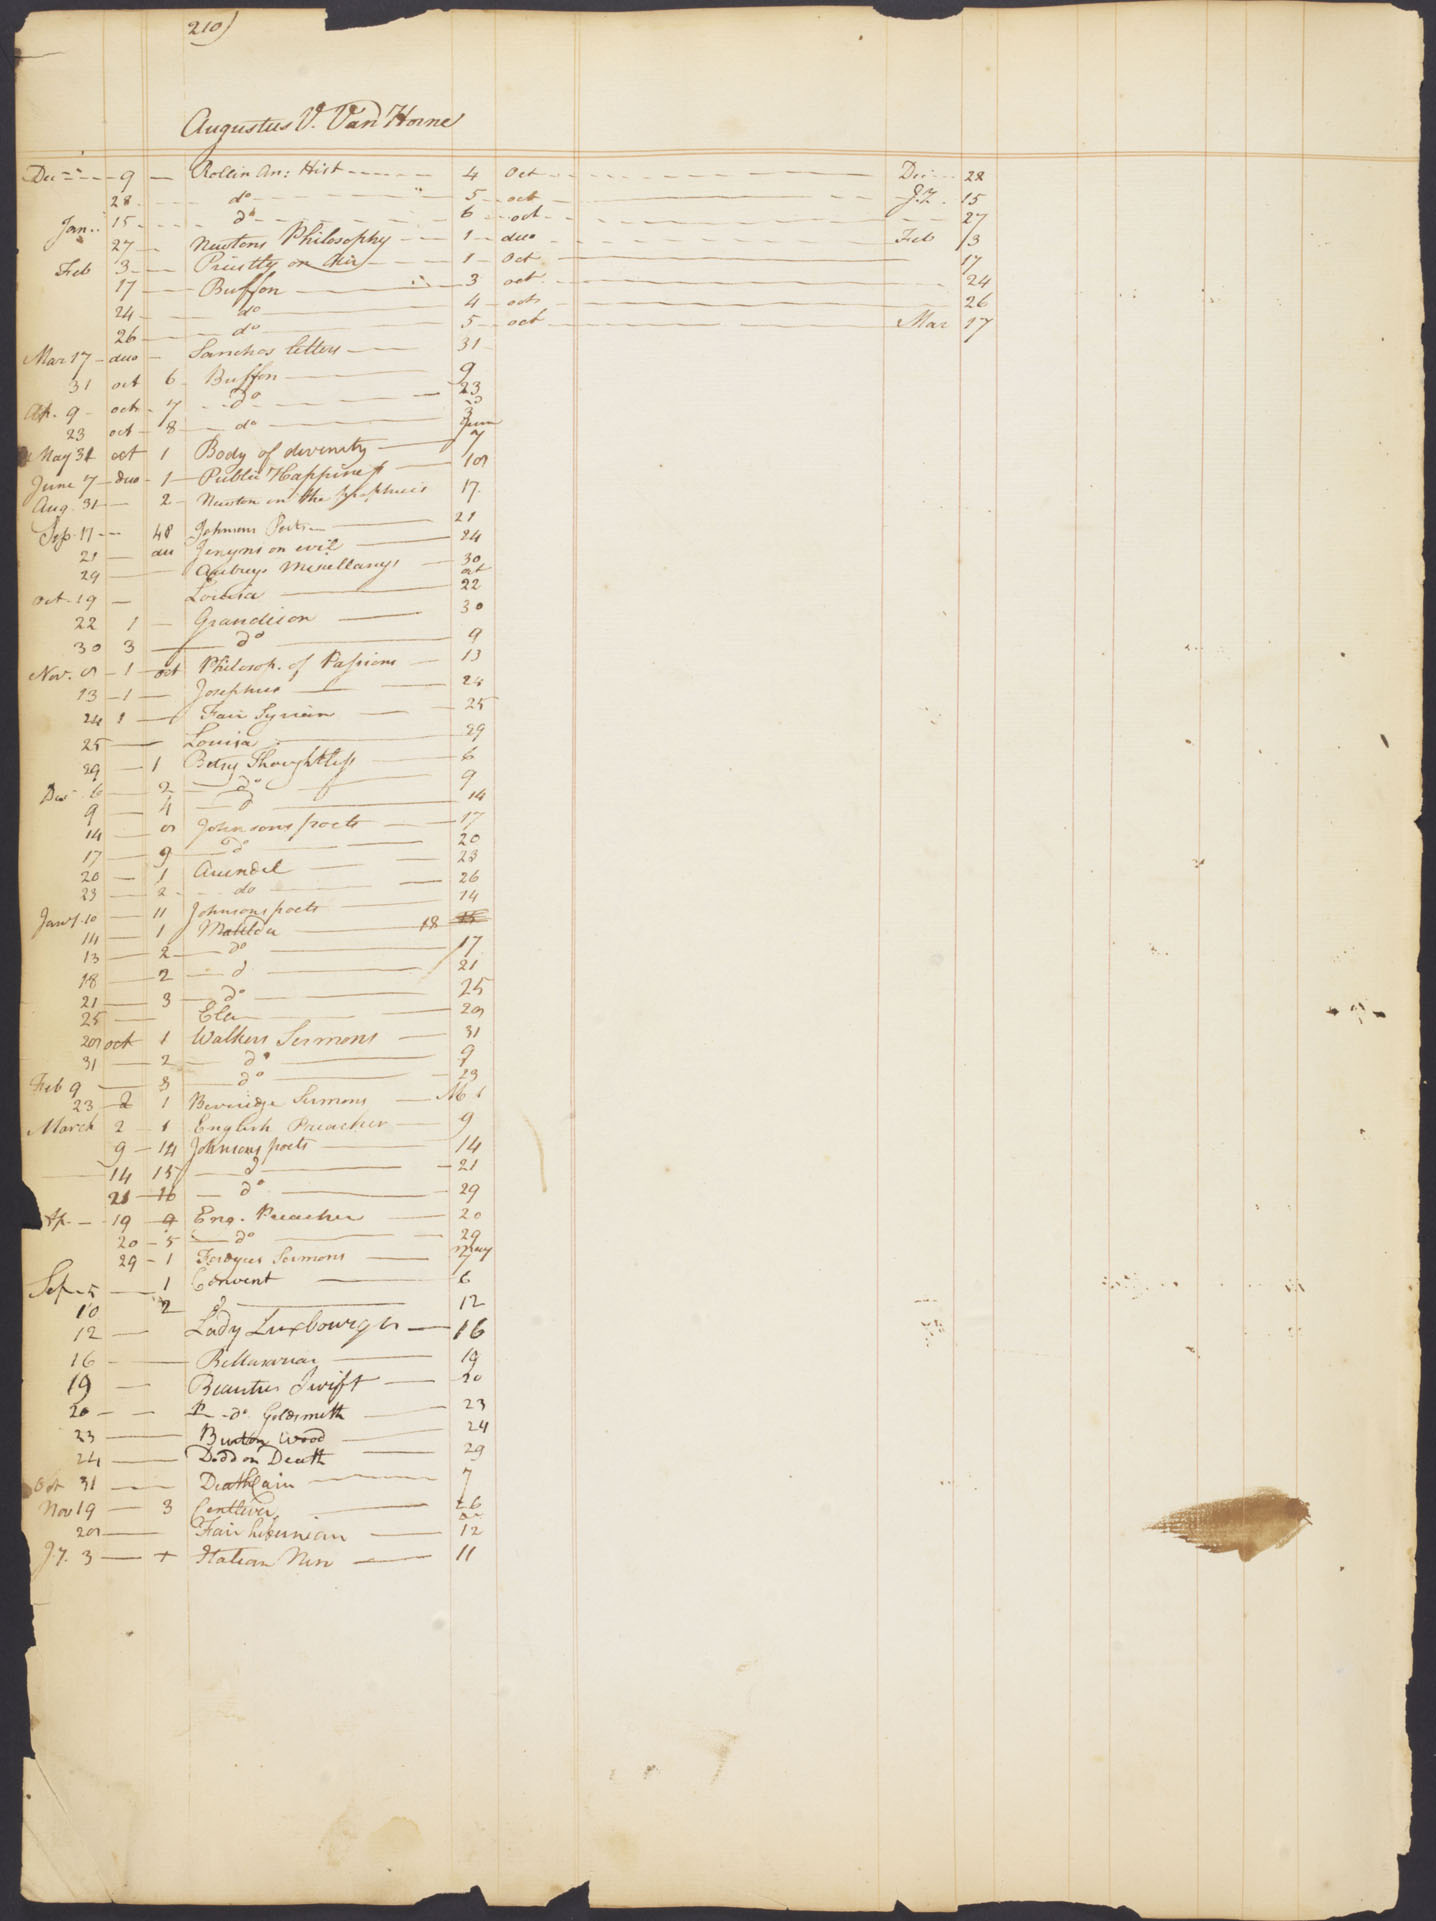 210)
Augustus V. Van Horne
Dec - 9 - Rollin An: Hist - 4 Oct - Dec 28
28 - do - 5 - oct - J.y. 15
Jan. 15 - do - 6 - oct - 27
27 - Newtons Philosophy - 1 - duo - Feb 3
Feb 3 - Priestly on Air - 1 - Oct - 17
17 - Buffon - 3 oct - 24
24 - do - 4 - oct - 26
26 - do - 5 - oct - Mar 17
Mar 17 - duo - Sanchos letters - 31
31 oct 6 - Buffon - 9
Ap. 9 - oct - 7 - do - 23
23 oct - 8 - do - 3
May 31 oct 1 Body of divinity - June 7
June 7 - duo - 1 - Public Happiness -
Aug. 31 - 2 - Newton on the prophecies 17
Sep. 17 - 48 Johnsons Poets - 21
21 - duo Jenyns on evil - 24
29 - Aubreys Miscellanys - 30
Oct. 19 - Louisa - oct 22
22 1 - Grandison - 30
30 3 - do - 9
Nov. 9 - 1 - oct Philosop. of Passions - 13
13 - 1 - Josephus - 24
24 1 - Fair Syrian - 25
25 - Louisa - 29
29 - 1 Betsy Thoughtless - 6
Dec 6 - 2 - do - 9
9 - 4 - d - 14
14 - Johnsons poets - 17
17 - 9 - do - 20
20 - 1 Arundel - 23
23 - 2 - do - 26
Jany. 10 - 11 Johnsons poets - 14
14 - 1 Matilda - 18
13 - 2 - do - 17
18 - 2 - d - 21
21 - 3 - do - 25
25 - Ela - 29
29 oct 1 Walkers Sermons - 31
31 - 2 - do - 9
Feb 9 - 3 - do - 23
23 - 2 1 Beveridge Sermons -
March 2 - 1 English Preacher - 9
9 - 14 Johnsons poets - 14
14 15 - d - 21
21 - 16 - do - 29
Ap. - 19 - 9 Eng. Preacher - 20
20 - 5 - do - 29
29 - 1 Fordyces Sermons - May 7
Sep. 5 - 1 Convent - 6
10 2 d - 12
12 - Lady Luxbourgh - 16
16 - Bellasarius - 19
19 - Beauties Swift - 20
20 - - do Goldsmith - 23
23 - Burton Wood - 24
24 - Dodd on Death - 29
Oct 31 - Death Cain - 7
Nov 19 - 3 Centlivre - 26
29 - Fair hibernian - 12
J.y. 3 - + Italian Nun - 11